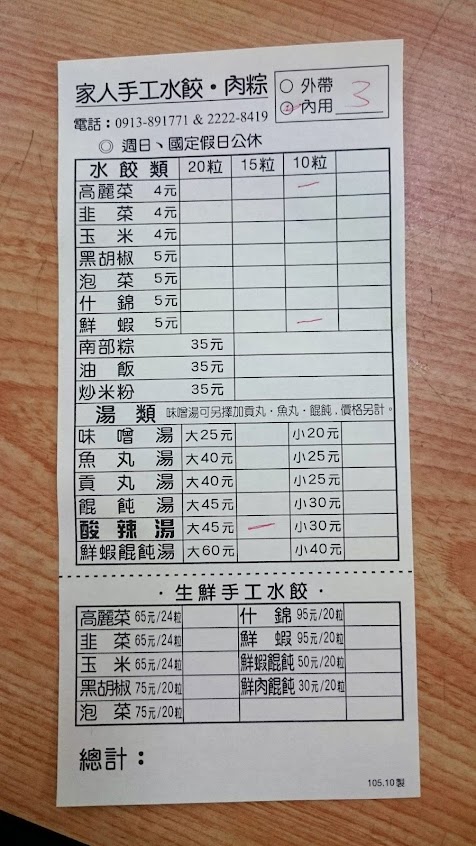 家人手工水餃·肉粽
○ 外帶
○ 內用 3
電話：0913-891771 & 2222-8419
◎ 週日、國定假日公休
水餃類 20粒 15粒 10粒
高麗菜 4元 一
韭菜 4元
玉米 4元
黑胡椒 5元
泡菜 5元
什錦 5元
鮮蝦 5元 一
南部粽 35元
油飯 35元
炒米粉 35元
湯類 味噌湯可另擇加貢丸·魚丸·餛飩，價格另計。
味噌湯 大25元 小20元
魚丸湯 大40元 小25元
貢丸湯 大40元 小25元
餛飩湯 大45元 小30元
酸辣湯 大45元 一 小30元
鮮蝦餛飩湯 大60元 小40元
·生鮮手工水餃·
高麗菜 65元/24粒 什錦 95元/20粒
韭菜 65元/24粒 鮮蝦 95元/20粒
玉米 65元/24粒 鮮蝦餛飩 50元/20粒
黑胡椒 75元/20粒 鮮肉餛飩 30元/20粒
泡菜 75元/20粒
總計：
105.10製